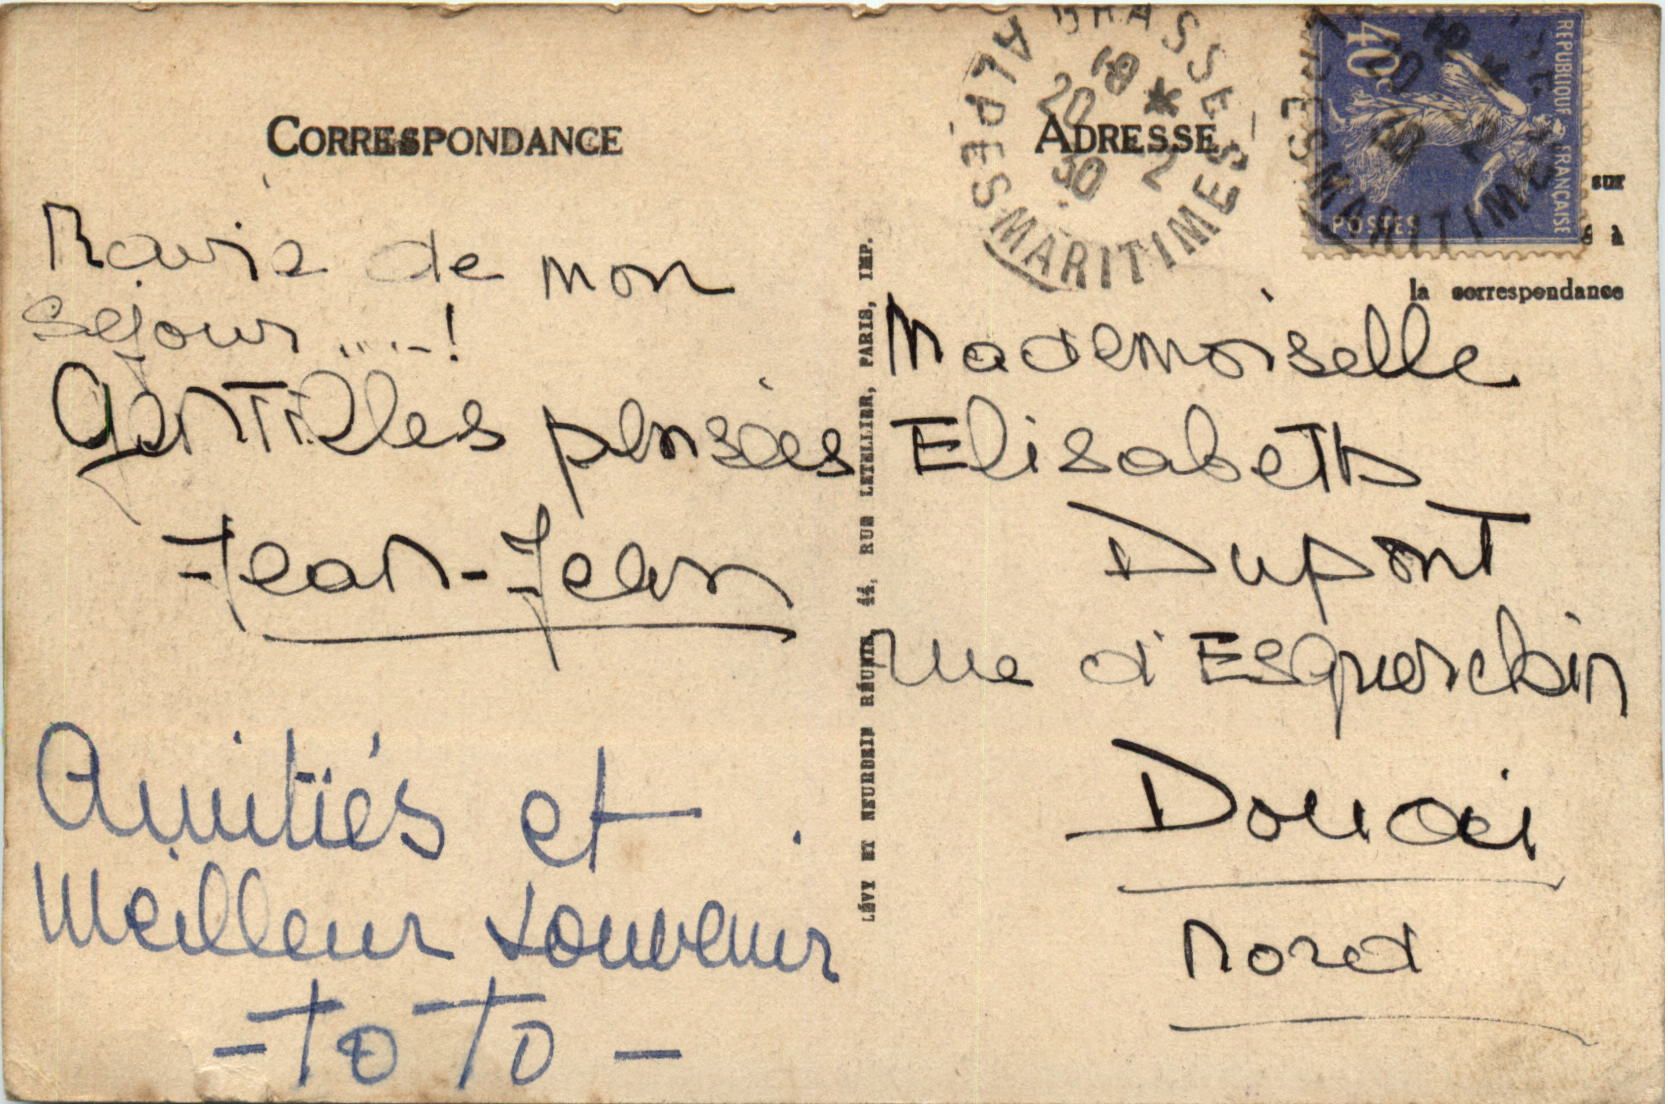 CORRESPONDANCE
Ravis de mon
séjour....!
Gentilles pensées
Jean-Jean
Amitiés et
meilleur souvenir
- TOTO -
LÉVY ET NEURDEIN RÉUNIS, 44, RUE LETELLIER, PARIS, IMP.
ADRESSE
GRASSE
ALPES MARITIMES
18 *
20 2
30
REPUBLIQUE FRANÇAISE
40c
POSTES
sur
à
la correspondance
Mademoiselle
Elisabeth
Dupont
rue d'Esquerchin
Douai
Nord